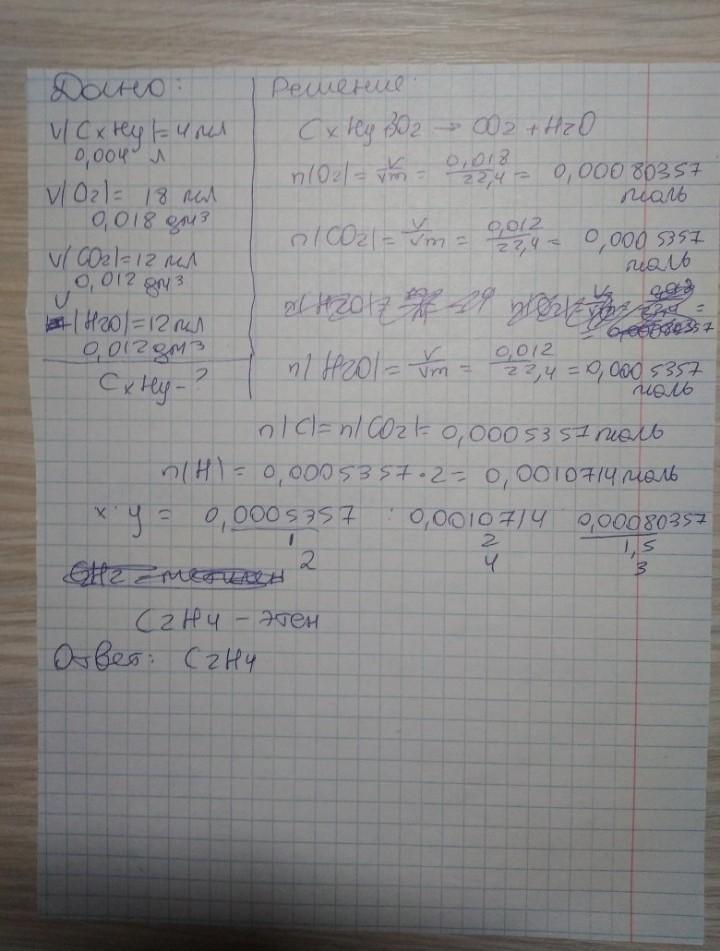 Дано:
V(CxHy)=4 мл
0,004 л
V(O2)= 18 мл
0,018 дм³
V(CO2)=12 мл
0,012 дм³
V(H2O)=12мл
0,012 дм³
CxHy-?
Решение:
CxHy 3O2 → CO2 + H2O
n(O2)= V/Vm = 0,018/22,4 = 0,00080357
моль
n(CO2)= V/Vm = 0,012/22,4 = 0,0005357
моль
n(H2O)= V/Vm = 0,012/22,4 = 0,0005357
моль
n(C)= n(CO2)= 0,0005357 моль
n(H)= 0,0005357·2= 0,0010714 моль
x:y = 0,0005357 : 0,0010714 0,00080357
1 2 1,5
2 4 3
C2H4 - этен
Ответ: C2H4